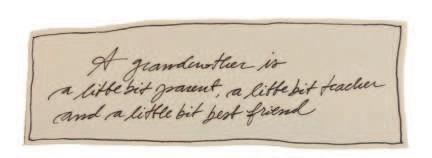 A grandmother is
a little bit parent, a little bit teacher
and a little bit best friend